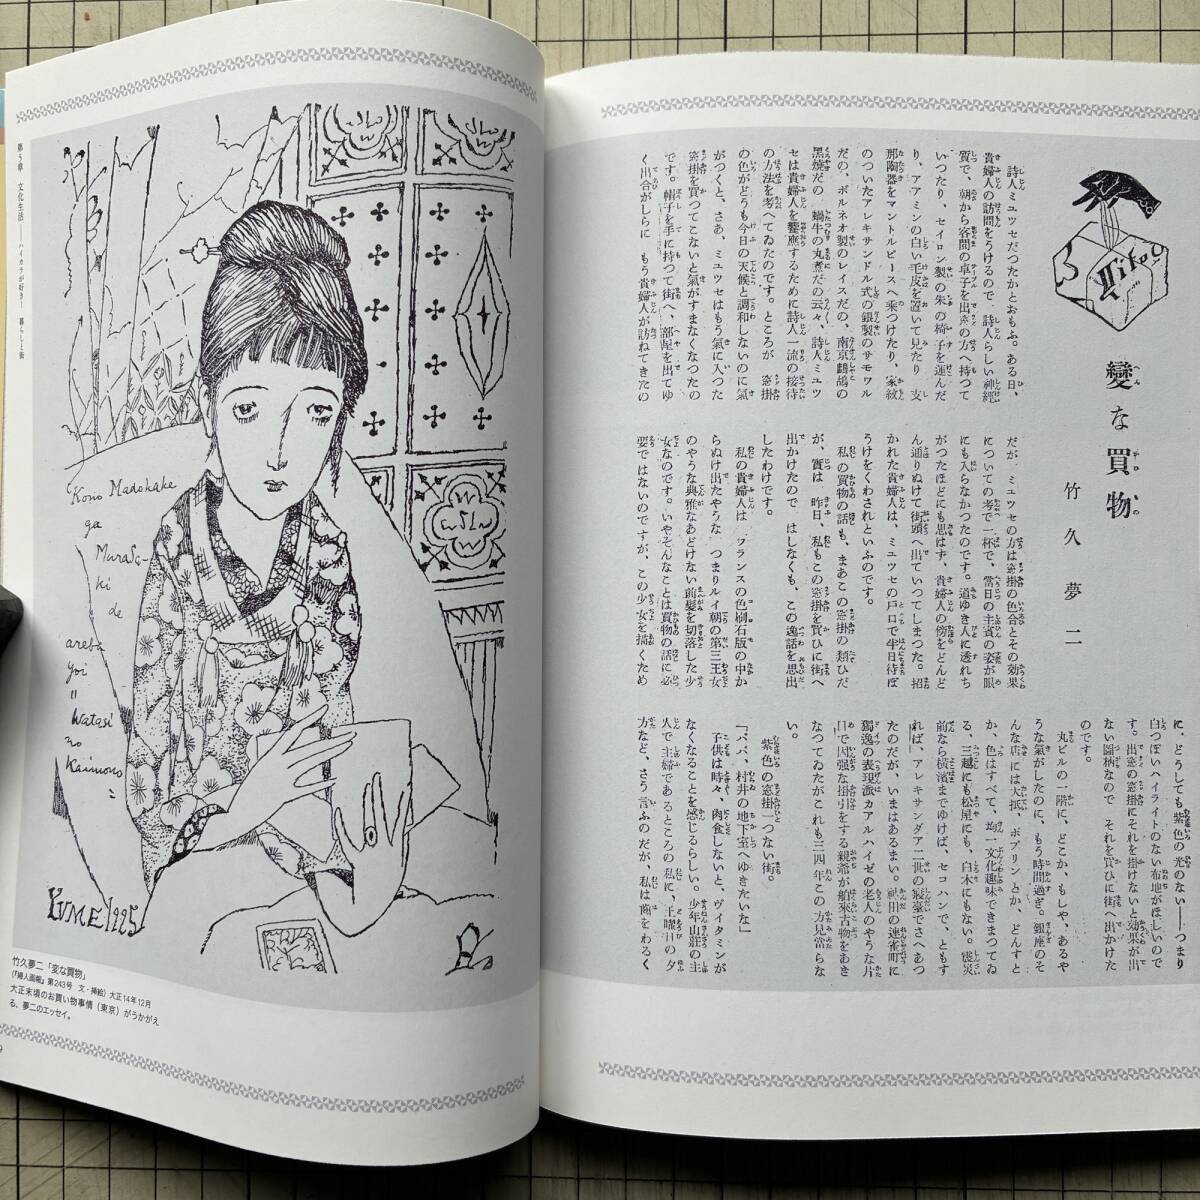 變な買物
竹久夢二
詩人ミユツセだつたかとおもふ。ある日、
貴婦人の訪問をうけるので、詩人らしい神經
質で、朝から客間の卓子を出窓の方へ持つて
いつたり、セイロン製の朱の椅子を運んだ
り、アアミンの白い毛皮を置いて見たり 支
那陶器をマントルピースへ乘つけたり、家紋
のついたアレキサンドル式の銀製のサモワル
だの、ボルネオ製のレイスだの、南京鸚鵡の
黑燒だの 蝸牛の丸煮だの云々、詩人ミユツ
セは貴婦人を饗應するために詩人一流の接待
の方法を考へてゐたのです。ところが 窓掛
の色がどうも今日の天候と調和しないのに氣
がつくと、さあ、ミユツセはもう氣に入つた
窓掛を買つてこないと氣がすまなくなつたの
です。帽子を手に持つて街へ、部屋を出てゆ
く出合がしらに もう貴婦人が訪ねてきたの
だが、ミユツセの方は窓掛の色合とその効果
についての考で一杯で、當日の主賓の姿が眼
にも入らなかつたのです。道ゆき人に透れち
がつたほどにも思はず、貴婦人の傍をどんど
ん通りぬけて街頭へ出ていつてしまつた。招
かれた貴婦人は、ミユツセの戸口で半日待ぼ
うけをくわされといふのです。
私の買物の話も、まあこの窓掛の類ひだ
が、實は 昨日、私もこの窓掛を買ひに街へ
出かけたので はしなくも、この逸話を思出
したわけです。
私の貴婦人は フランスの色刷石版の中か
らぬけ出たやうな つまりルイ朝の第三王女
のやうな典雅なあどけない前髮を切落した少
女なのです。いやそんなことは買物の話に必
要ではないのですが、この少女を描くため
に、どうしても紫色の光のない――つまり
白つぽいハイライトのない布地がほしいので
す。出窓の窓掛にそれを掛けないと効果が出
ない圖柄なので それを買ひに街へ出かけた
のです。
丸ビルの一階に、どこか、もしや、あるや
うな氣がしたのに、もう時間過ぎ。銀座のそ
んな店には大抵、ポプリン とか、どんすと
か、色はすべて、均一文化趣味できまつてゐ
る、三越にも松屋にも、白木にもない。震災
前なら橫濱までゆけば、セコハンで、ともす
れば、アレキサンダア二世の寢臺でさへあつ
たのだが、いまはあるまい。神田の連雀町に
獨逸の表現派カアルハイゼの老人のやうな片
目で因强な掛引をする親爺が舶來古物をあき
なつてゐたがこれも三四年この方見當らな
い。
紫色の窓掛一つない街。
「パパ、村井の地下室へゆきたいな」
子供は時々、肉食しないと、ヴイタミンが
なくなることを感じるらしい。少年山莊の主
人で主婦であるところの私に、土曜日の夕
方など、さう言ふのだが、私は齒をわるく
第5章 文化生活――ハイカラが好き! 暮らしと街
"Kono Madokake
ga
Murasa-
ki de
areba
yoi
"Watasi
no
Kaimono"
YUME 1925
竹久夢二「変な買物」
(『婦人画報』第243号 文・挿絵) 大正14年12月
大正末頃のお買い物事情(東京)がうかがえ
る、夢二のエッセイ。
9